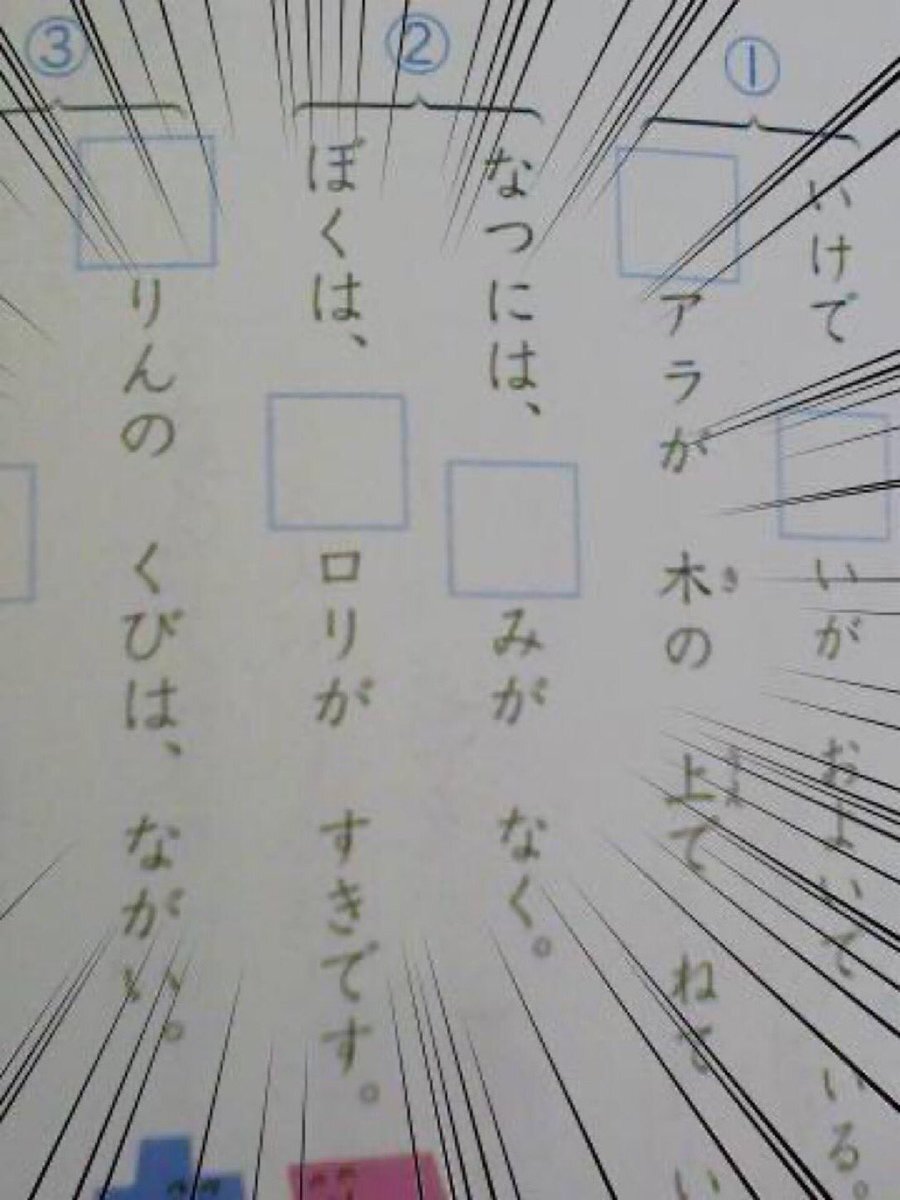 ①
いけで□いが およいで いる。
□アラが 木の 上で ねて い
き
うえ
②
なつには、□みが なく。
ぼくは、□ロリが すきです。
③
□りんの くびは、ながい。